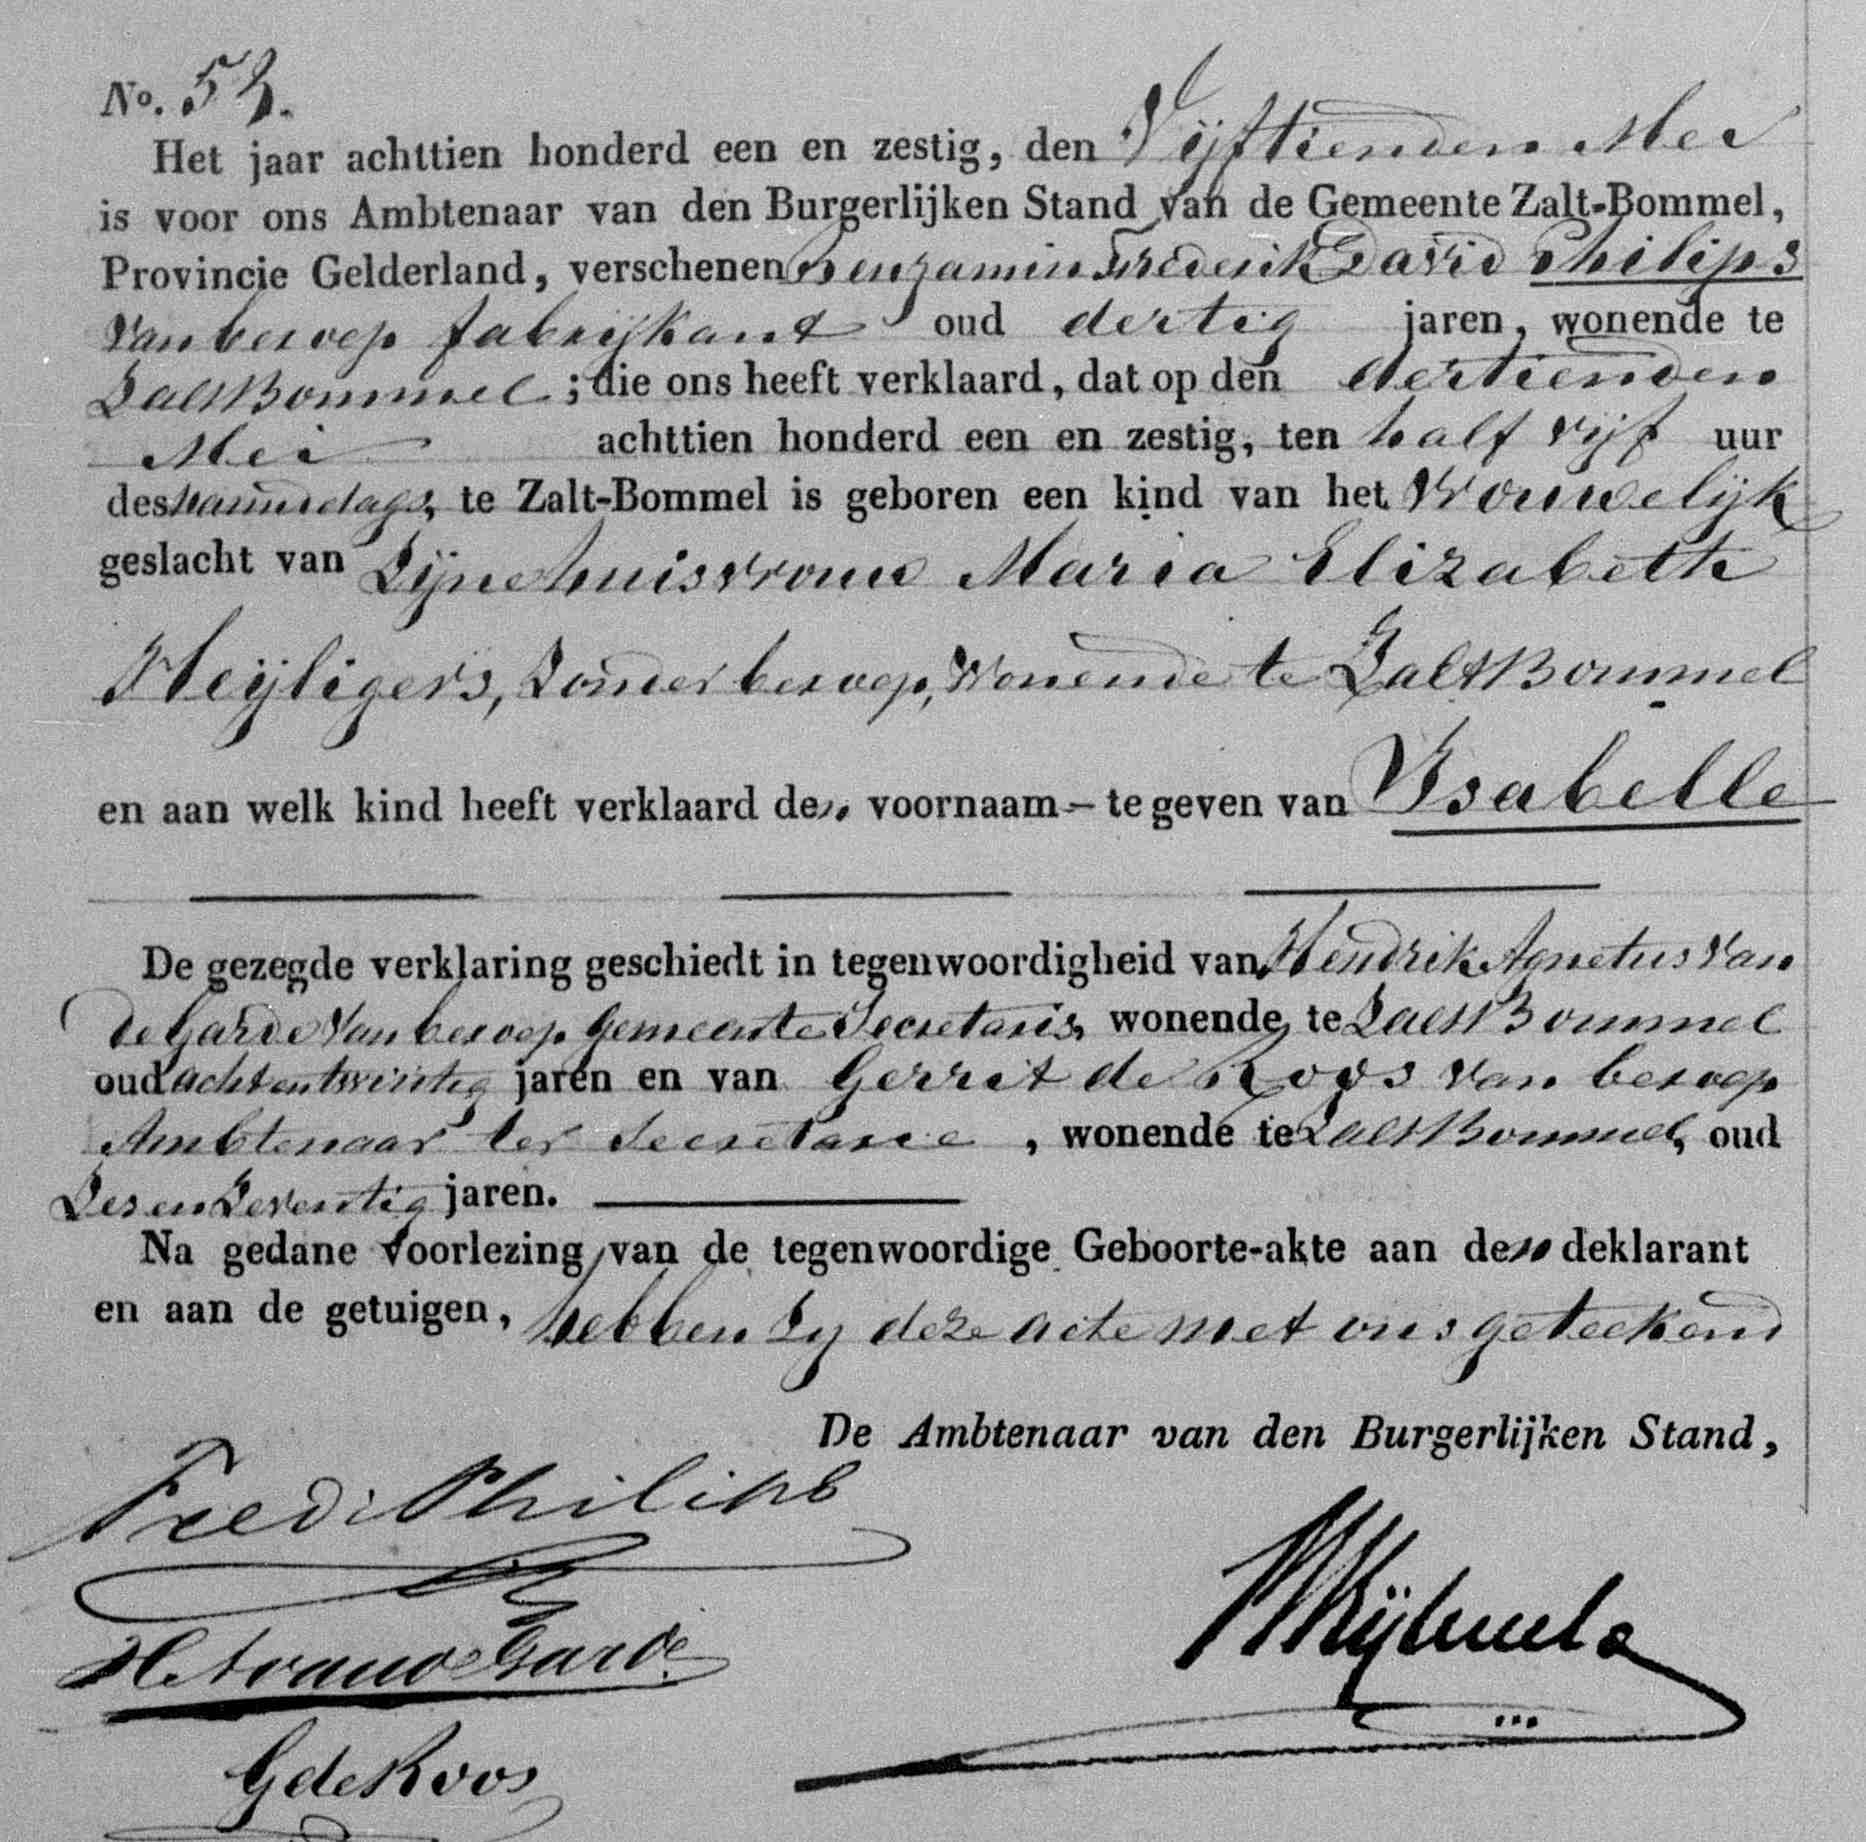 No. 53.
Het jaar achttien honderd een en zestig, den Vijftienden Mei
is voor ons Ambtenaar van den Burgerlijken Stand van de Gemeente Zalt-Bommel,
Provincie Gelderland, verschenen Benjamin Frederik David Philips
van beroep fabrijkant oud dertig jaren, wonende te
ZaltBommel; die ons heeft verklaard, dat op den dertienden
Mei achttien honderd een en zestig, ten half vijf uur
des namiddags, te Zalt-Bommel is geboren een kind van het Vrouwelijk
geslacht van Zijne huisvrouw Maria Elizabeth
Heyligers, Zonder beroep, Wonende te ZaltBommel
en aan welk kind heeft verklaard den voornaam - te geven van Ysabelle
De gezegde verklaring geschiedt in tegenwoordigheid van Hendrik Agnetus van
de Garde van beroep Gemeente Secretaris, wonende te ZaltBommel
oud achtentwintig jaren en van Gerrit de Roos van beroep
Ambtenaar ter Secretarie, wonende te ZaltBommel, oud
Zes en Zeventig jaren.
Na gedane voorlezing van de tegenwoordige Geboorte-akte aan den deklarant
en aan de getuigen, hebben Zy deze acte met ons geteekend
De Ambtenaar van den Burgerlijken Stand,
Fred: Philips
HAvandeGarde
GdeRoos